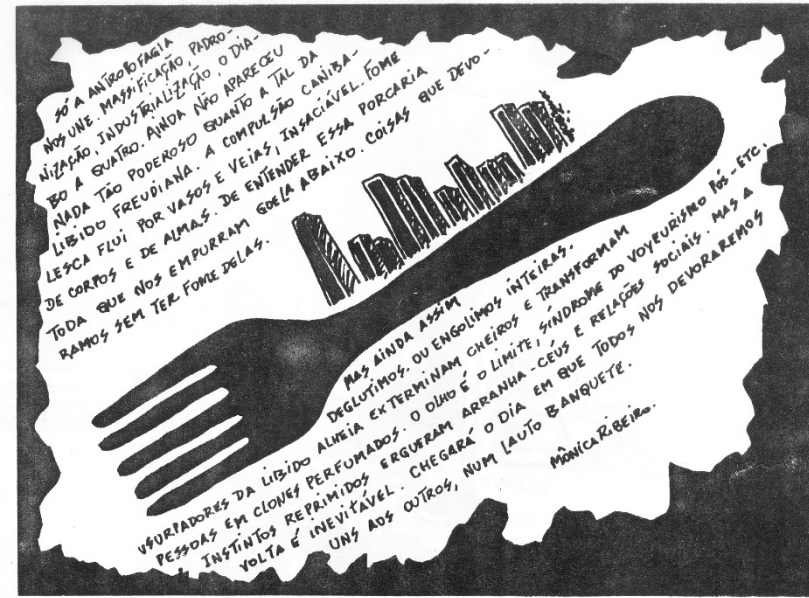 SÓ A ANTROPOFAGIA
NOS UNE. MASSIFICAÇÃO, PADRO-
NIZAÇÃO, INDUSTRIALIZAÇÃO, O DIA-
BO A QUATRO. AINDA NÃO APARECEU
NADA TÃO PODEROSO QUANTO A TAL DA
LIBIDO FREUDIANA. A COMPULSÃO CANIBA-
LESCA FLUI POR VASOS E VEIAS, INSACIÁVEL. FOME
DE CORPOS E DE ALMAS. DE ENTENDER ESSA PORCARIA
TODA QUE NOS EMPURRAM GOELA ABAIXO. COISAS QUE DEVO-
RAMOS SEM TER FOME DELAS.
MAS AINDA ASSIM
DEGLUTIMOS. OU ENGOLIMOS INTEIRAS.
USURPADORES DA LIBIDO ALHEIA EXTERMINAM CHEIROS E TRANSFORMAM
PESSOAS EM CLONES PERFUMADOS. O OLHO É O LIMITE, SÍNDROME DO VOYEURISMO PÓS-ETC.
INSTINTOS REPRIMIDOS ERGUERAM ARRANHA-CÉUS E RELAÇÕES SOCIAIS. MAS A
VOLTA É INEVITÁVEL. CHEGARÁ O DIA EM QUE TODOS NOS DEVORAREMOS
UNS AOS OUTROS, NUM LAUTO BANQUETE.
MÔNICA RIBEIRO.